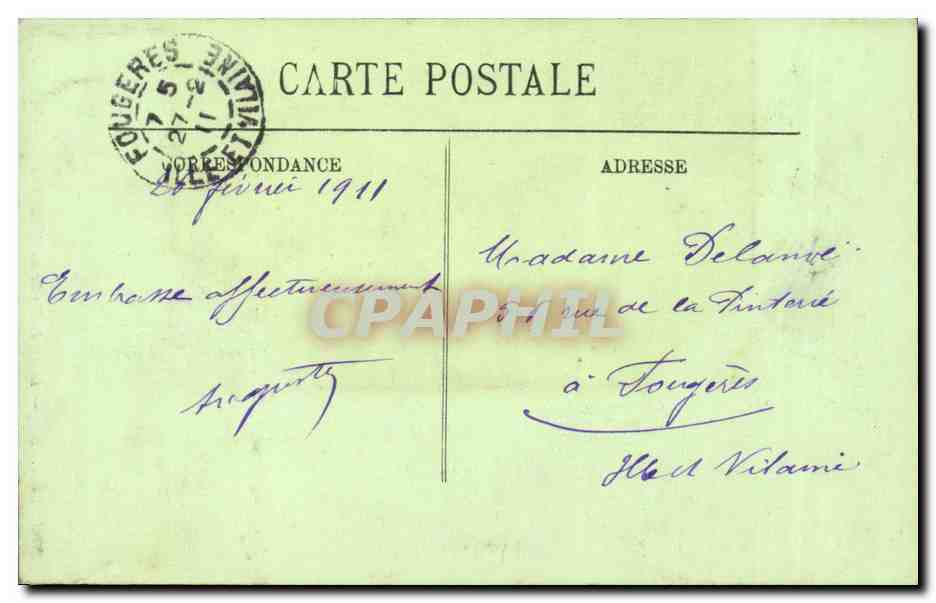 FOUGERES ILLE-ET-VILAINE
7 5
27 -2
11
CARTE POSTALE
CORRESPONDANCE
ADRESSE
février 1911
Embrasse affectueusement
Auguste
Madame
rue de la Pinterie
à Fougères
Ille et Vilaine
CPAPHIL